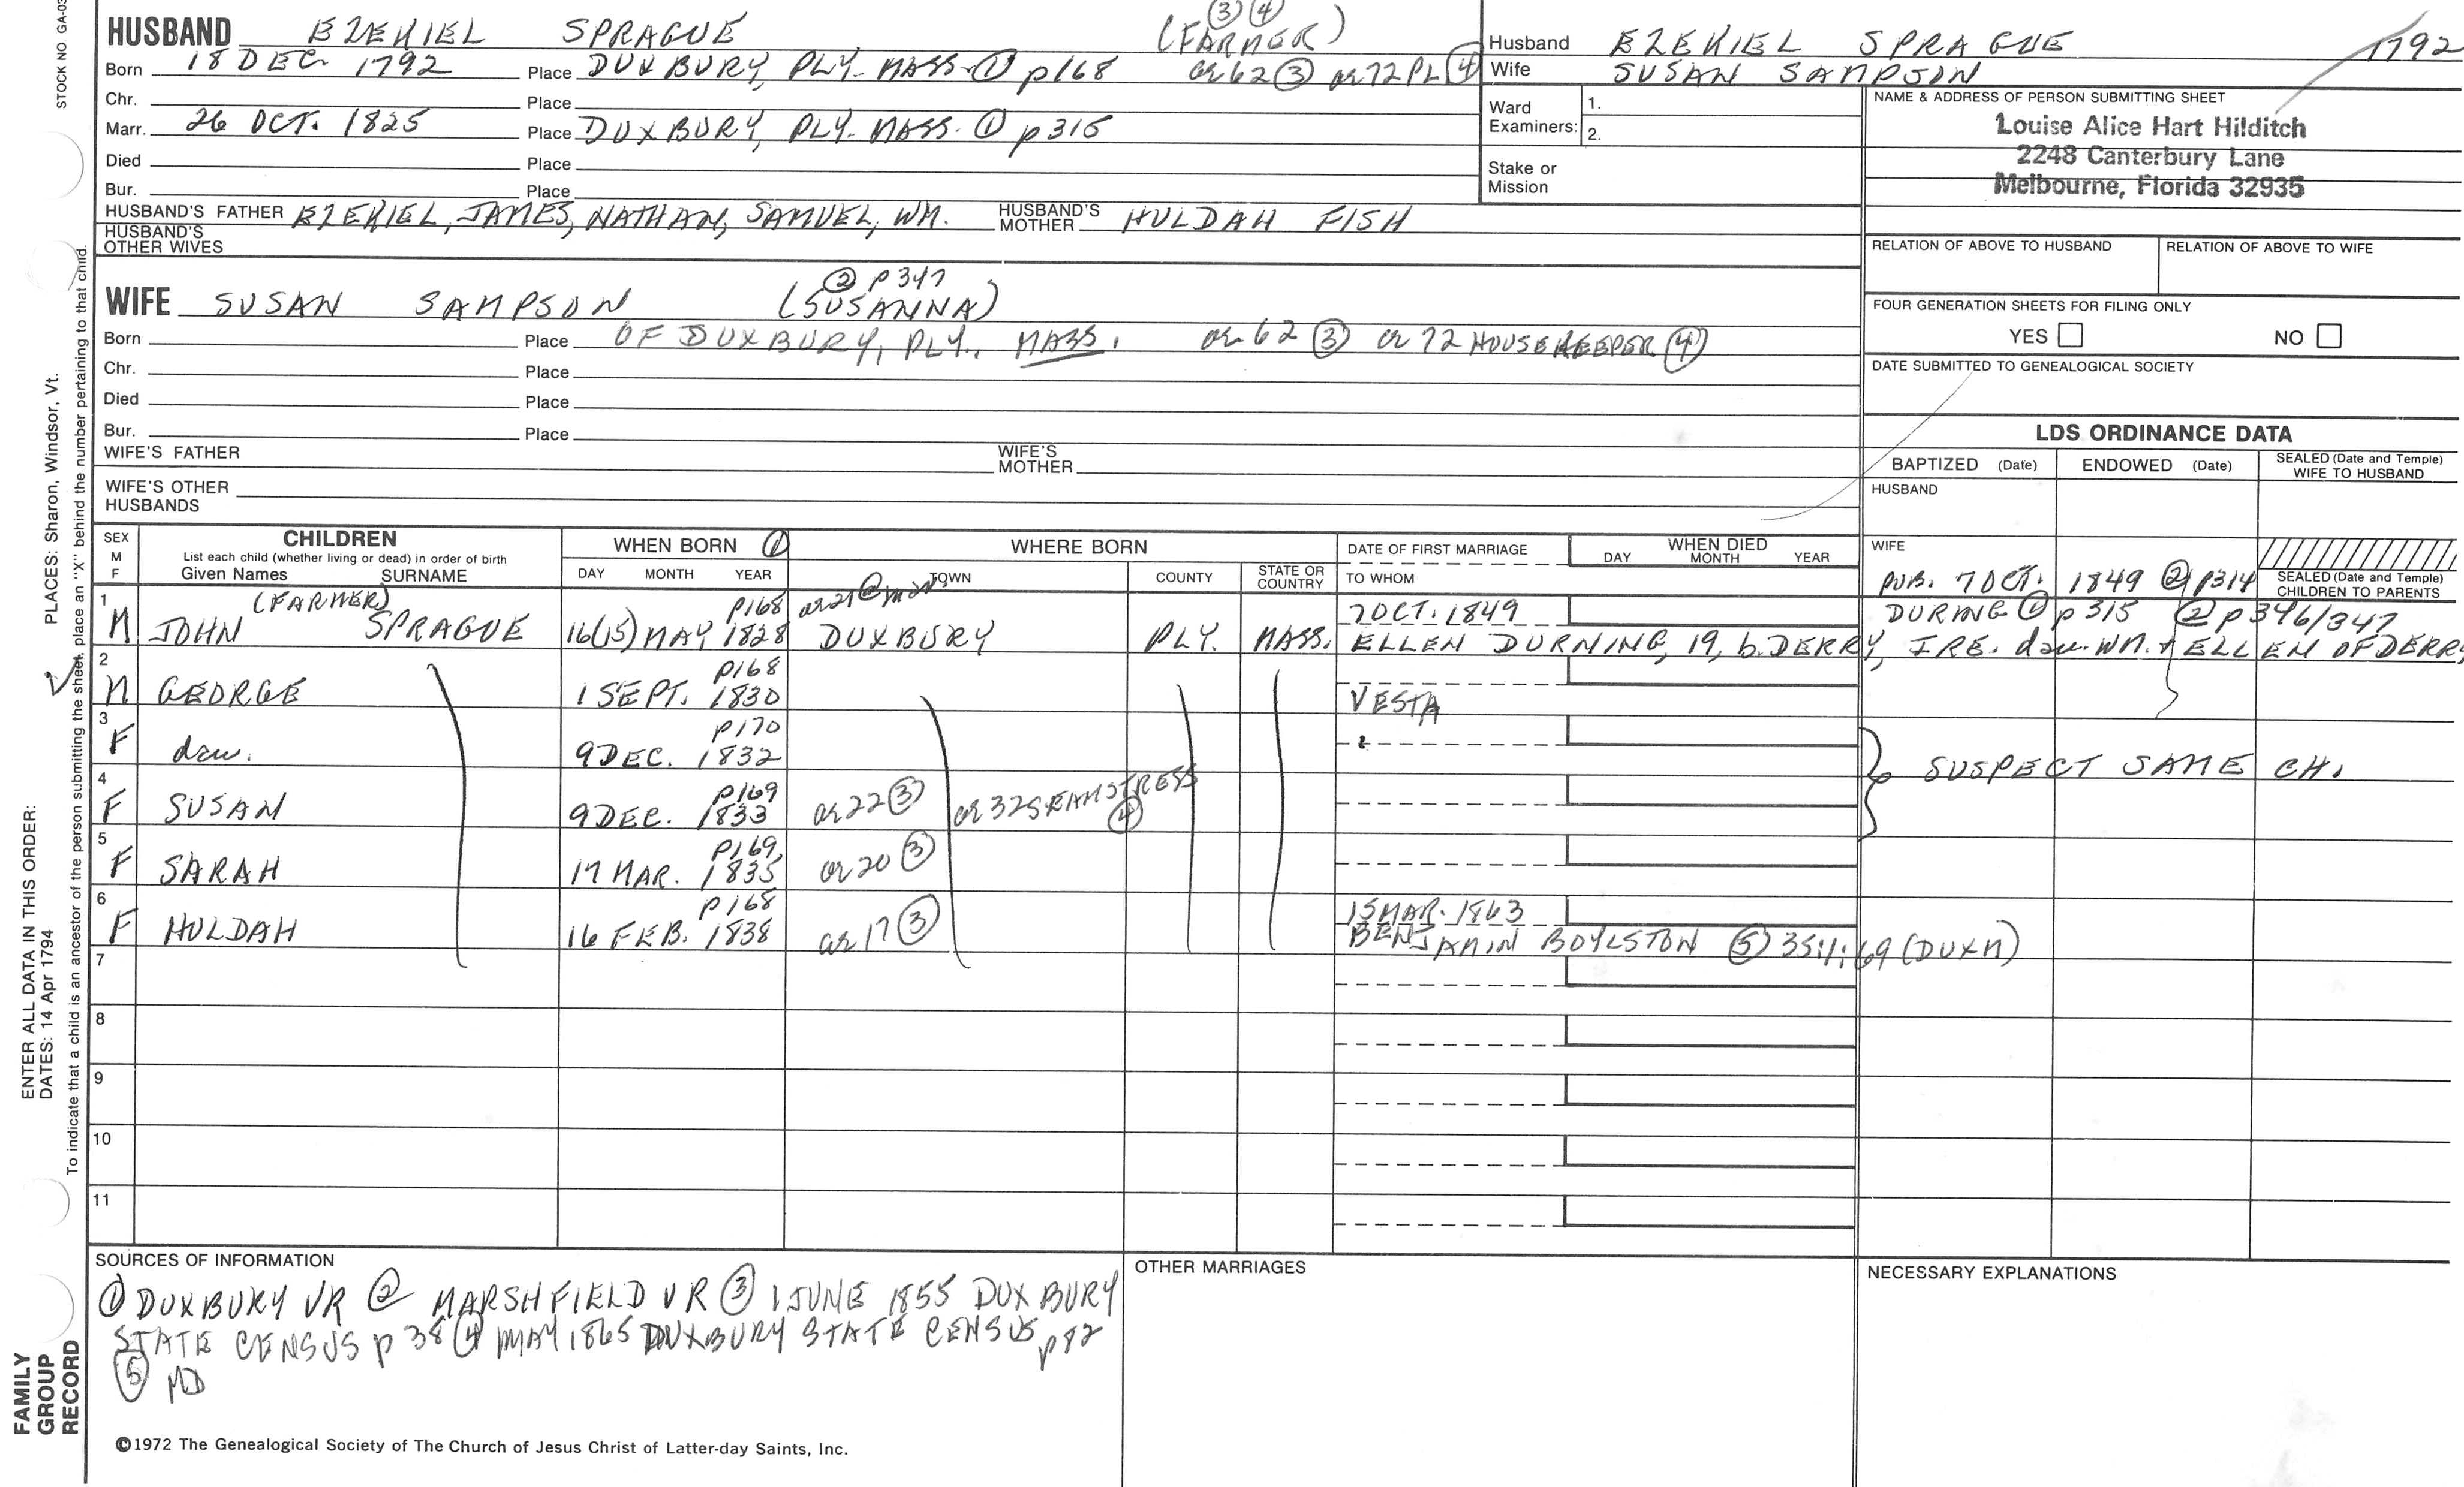 STOCK NO GA-03
HUSBAND EZEKIEL SPRAGUE (FARMER) ③ ④
Born 18 DEC. 1792 Place DUXBURY, PLY. MASS. ① p168 ae 62 ③ ae 72 PL ④
Chr. Place
Marr. 26 OCT. 1825 Place DUXBURY, PLY. MASS. ① p315
Died Place
Bur. Place
HUSBAND'S FATHER EZEKIEL, JAMES, NATHAN, SAMUEL, WM. HUSBAND'S MOTHER HULDAH FISH
HUSBAND'S OTHER WIVES
② p347
WIFE SUSAN SAMPSON (SUSANNA)
Born Place OF DUXBURY, PLY., MASS. ae 62 ③ ae 72 HOUSEKEEPER ④
Chr. Place
Died Place
Bur. Place
WIFE'S FATHER WIFE'S MOTHER
WIFE'S OTHER HUSBANDS
Husband EZEKIEL SPRAGUE 1792
Wife SUSAN SAMPSON
Ward Examiners: 1.
2.
Stake or Mission
NAME & ADDRESS OF PERSON SUBMITTING SHEET
Louise Alice Hart Hilditch
2248 Canterbury Lane
Melbourne, Florida 32935
RELATION OF ABOVE TO HUSBAND RELATION OF ABOVE TO WIFE
FOUR GENERATION SHEETS FOR FILING ONLY
YES NO
DATE SUBMITTED TO GENEALOGICAL SOCIETY
LDS ORDINANCE DATA
BAPTIZED (Date) ENDOWED (Date) SEALED (Date and Temple) WIFE TO HUSBAND
HUSBAND
WIFE
SEALED (Date and Temple) CHILDREN TO PARENTS
SEX M F CHILDREN WHEN BORN ① WHERE BORN DATE OF FIRST MARRIAGE WHEN DIED
List each child (whether living or dead) in order of birth
Given Names SURNAME DAY MONTH YEAR TOWN COUNTY STATE OR COUNTRY TO WHOM DAY MONTH YEAR
PUB. 7 OCT. 1849 ② p314
(FARMER) p168 ae 21 @ mar. 7 OCT. 1849 DURING ① p 315 ② p 346/347
1 M JOHN SPRAGUE 16(15) MAY 1828 DUXBURY PLY. MASS. ELLEN DURNING, 19, b. DERRY, IRE. dau. WM. + ELLEN OF DERRY
2 M GEORGE 1 SEPT. 1830 p168 VESTA
3 F dau. 9 DEC. 1832 p170
SUSPECT SAME CH.
4 F SUSAN 9 DEC. 1833 p169 ae 22 ③ ae 32 SEAMSTRESS ④
5 F SARAH 17 MAR. 1835 p169 ae 20 ③
6 F HULDAH 16 FEB. 1838 p168 ae 17 ③ 15 MAR. 1863
BENJAMIN BOYLSTON ⑤ 35:1:69 (DUXM)
7
8
9
10
11
SOURCES OF INFORMATION
① DUXBURY VR ② MARSHFIELD VR ③ 1 JUNE 1855 DUXBURY
STATE CENSUS p 38 ④ MAY 1865 DUXBURY STATE CENSUS p82
⑤ MD
OTHER MARRIAGES
NECESSARY EXPLANATIONS
©1972 The Genealogical Society of The Church of Jesus Christ of Latter-day Saints, Inc.
FAMILY GROUP RECORD
ENTER ALL DATA IN THIS ORDER:
DATES: 14 Apr 1794
PLACES: Sharon, Windsor, Vt.
To indicate that a child is an ancestor of the person submitting the sheet, place an "X" behind the number pertaining to that child.